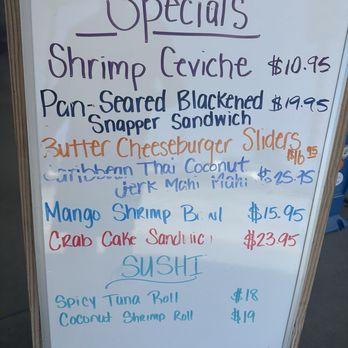 Specials
Shrimp Ceviche $10.95
Pan-Seared Blackened $19.95
Snapper Sandwich
Butter Cheeseburger Sliders
$16.95
Caribbean Thai Coconut
Jerk Mahi Mahi $25.95
Mango Shrimp $15.95
Crab Cake $23.95
SUSHI
Spicy Tuna Roll $18
Coconut Shrimp Roll $19